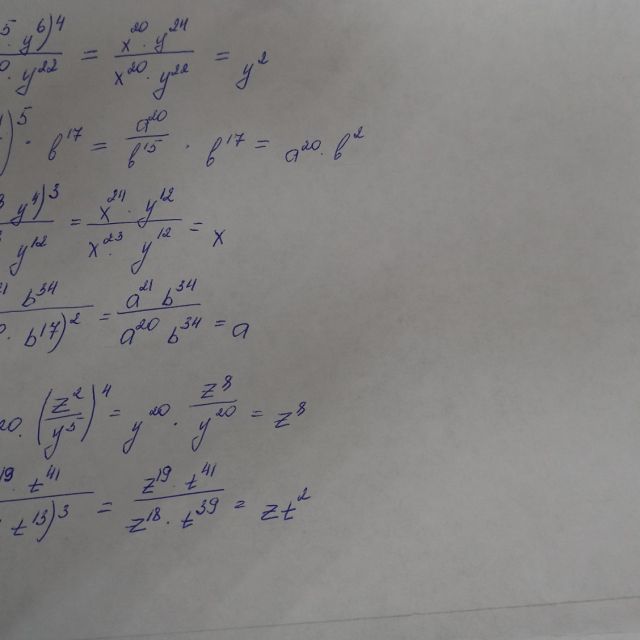 5 · y⁶)⁴ / 0 · y²² = x²⁰ · y²⁴ / x²⁰ · y²² = y²
)⁵ · b¹⁷ = a²⁰ / b¹⁵ · b¹⁷ = a²⁰ · b²
y⁴)³ / y¹² = x²⁴ · y¹² / x²³ · y¹² = x
b³⁴ / · b¹⁷)² = a²¹ b³⁴ / a²⁰ b³⁴ = a
20 · (z² / y⁵)⁴ = y²⁰ · z⁸ / y²⁰ = z⁸
19 · t⁴¹ / t¹³)³ = z¹⁹ · t⁴¹ / z¹⁸ · t³⁹ = zt²